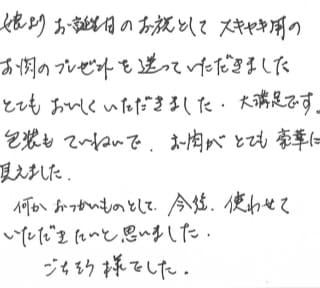 娘より お誕生日のお祝として スキヤキ用の
お肉のプレゼントを送っていただきました
とてもおいしくいただきました．大満足です。
包装も ていねいで、お肉が とても 豪華に
見えました．
何か おつかいものとして、今後、使わせて
いただきたいと思いました．
ごちそう様でした．